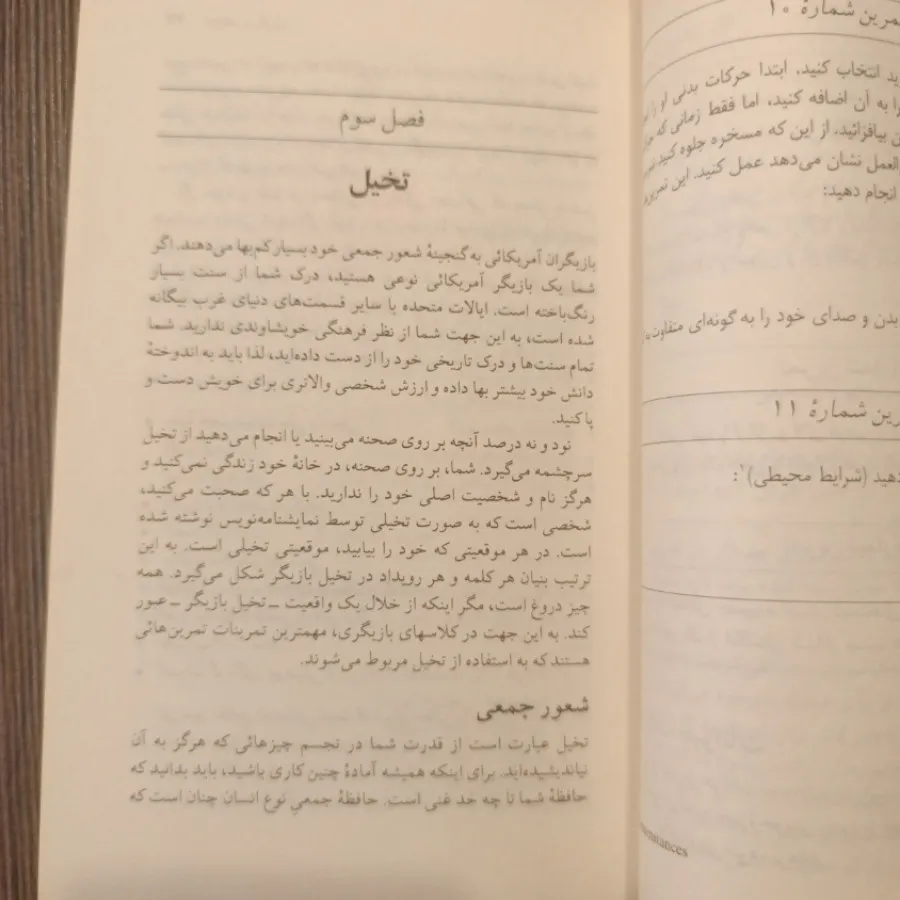 تمرین شمارهٔ ۱۰
ید انتخاب کنید، ابتدا حرکات بدنی او را
را به آن اضافه کنید، اما فقط زمانی که
ن بیافزائید. از این که مسخره جلوه کنید
العمل نشان می‌دهد عمل کنید. این تمرین
انجام دهید:
بدن و صدای خود را به گونه‌ای متفاوت
رین شمارهٔ ۱۱
دهید (شرایط محیطی)۱:
umstances
فصل سوم
تخیل
بازیگران آمریکائی به گنجینهٔ شعور جمعی خود بسیار کم‌بها می‌دهند. اگر
شما یک بازیگر آمریکائی نوعی هستید، درک شما از سنت بسیار
رنگ‌باخته است. ایالات متحده با سایر قسمت‌های دنیای غرب بیگانه
شده است، به این جهت شما از نظر فرهنگی خویشاوندی ندارید. شما
تمام سنت‌ها و درک تاریخی خود را از دست داده‌اید، لذا باید به اندوختهٔ
دانش خود بیشتر بها داده و ارزش شخصی والاتری برای خویش دست و
پا کنید.
نود و نه درصد آنچه بر روی صحنه می‌بینید یا انجام می‌دهید از تخیل
سرچشمه می‌گیرد. شما، بر روی صحنه، در خانهٔ خود زندگی نمی‌کنید و
هرگز نام و شخصیت اصلی خود را ندارید. با هر که صحبت می‌کنید،
شخصی است که به صورت تخیلی توسط نمایشنامه‌نویس نوشته شده
است. در هر موقعیتی که خود را بیابید، موقعیتی تخیلی است. به این
ترتیب بنیان هر کلمه و هر رویداد در تخیل بازیگر شکل می‌گیرد. همه
چیز دروغ است، مگر اینکه از خلال یک واقعیت ــ تخیل بازیگر ــ عبور
کند. به این جهت در کلاسهای بازیگری، مهمترین تمرینات تمرین‌هائی
هستند که به استفاده از تخیل مربوط می‌شوند.
شعور جمعی
تخیل عبارت است از قدرت شما در تجسم چیزهائی که هرگز به آن
نیاندیشیده‌اید. برای اینکه همیشه آمادهٔ چنین کاری باشید، باید بدانید که
حافظهٔ شما تا چه حد غنی است. حافظهٔ جمعیِ نوع انسان چنان است که